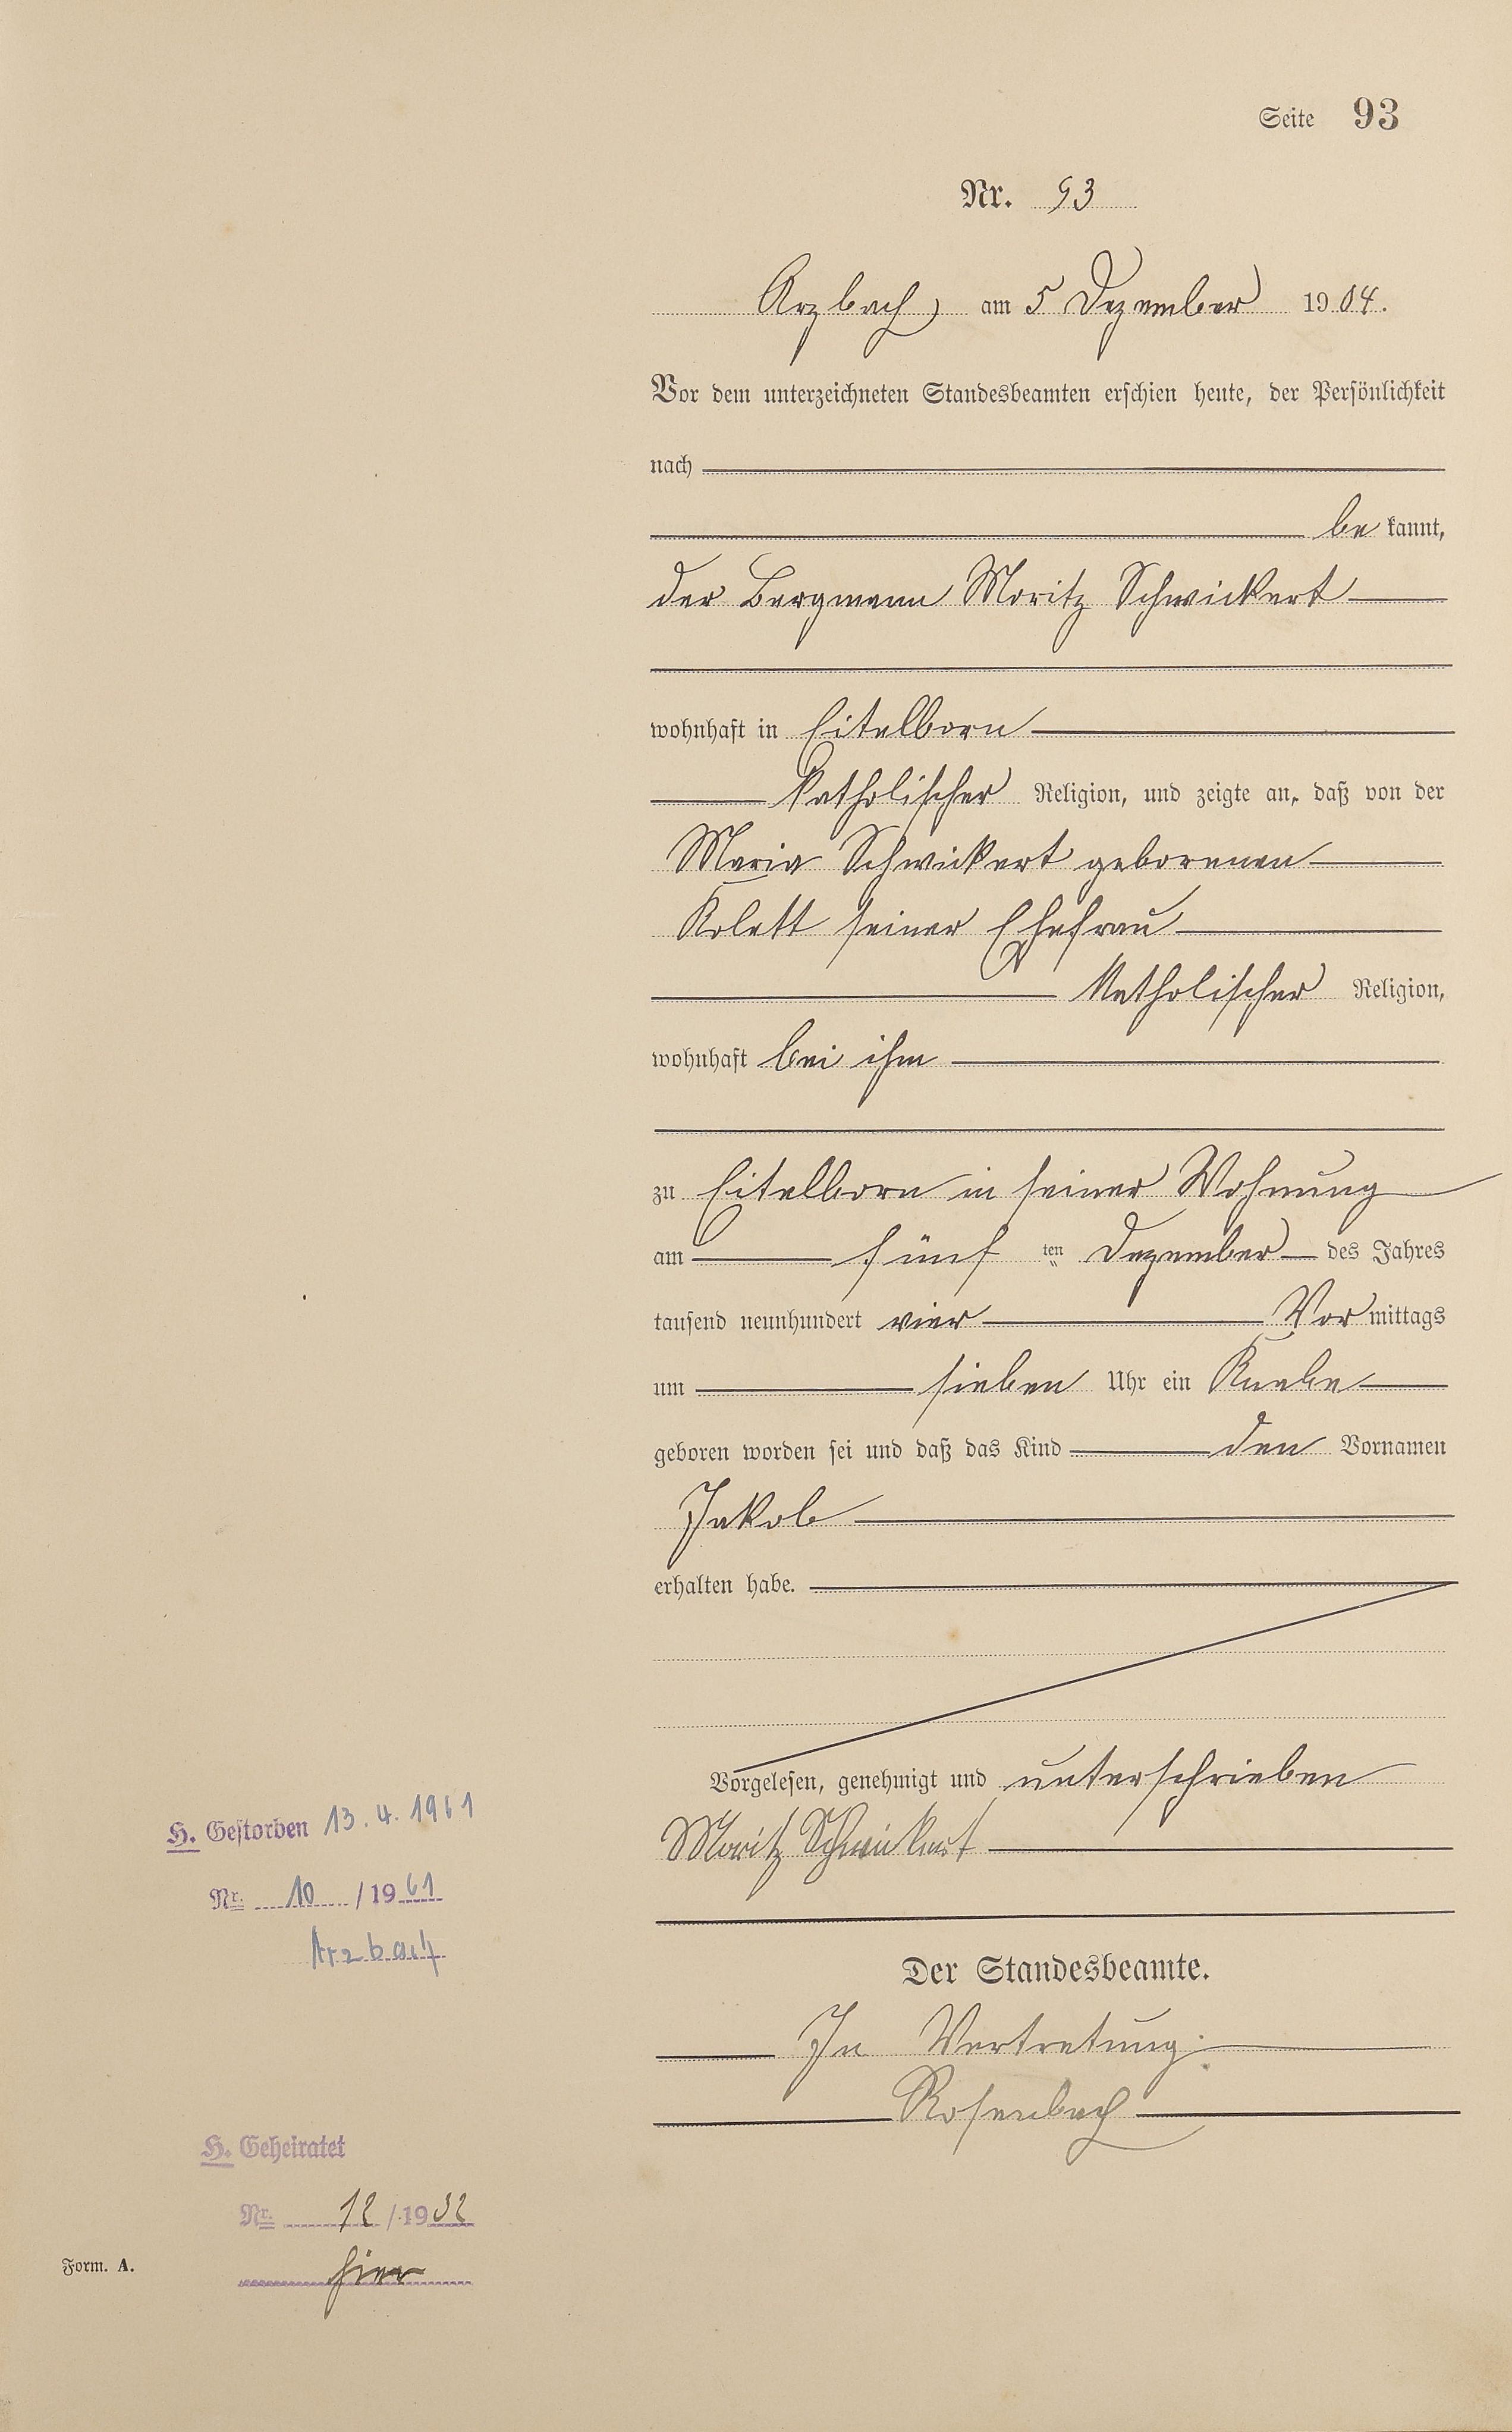 Seite 93
Nr. 93
Arzbach am 5 Dezember 1904.
Vor dem unterzeichneten Standesbeamten erschien heute, der Persönlichkeit
nach
be kannt,
der Bergmann Moritz Schwickert
wohnhaft in Eitelborn
katholischer Religion, und zeigte an, daß von der
Maria Schwickert geborenen
Kolett seiner Ehefrau
katholischer Religion,
wohnhaft bei ihm
zu Eitelborn in seiner Wohnung
am fünf ten Dezember des Jahres
tausend neunhundert vier Vor mittags
um sieben Uhr ein Knabe
geboren worden sei und daß das Kind den Vornamen
Jakob
erhalten habe.
Vorgelesen, genehmigt und unterschrieben
Moritz Schwickert
Der Standesbeamte.
In Vertretung.
Rosenbach
H. Gestorben 13.4.1961
Nr. 10 / 1961
Arzbach
H. Geheiratet
Nr. 12 / 1932
hier
Form. A.